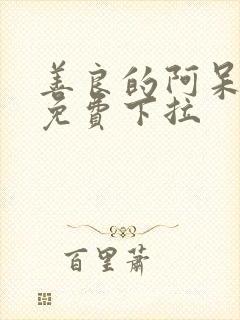 善良的阿呆
免費下拉
百里蕭